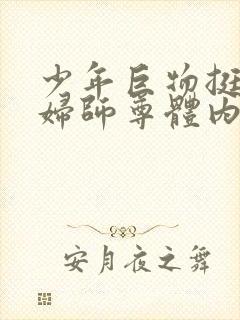 少年巨物挺
婦師尊體內
安月夜之舞